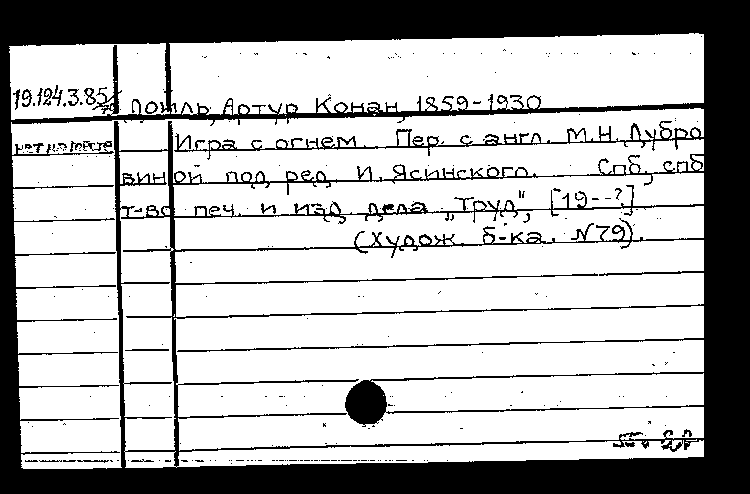 19.124.3.85
Дойль, Артур Конан, 1859-1930
нет на месте
Игра с огнем. Пер. с англ. М.Н. Дубро
виной под ред. И. Ясинского. Спб, спб
т-во печ. и изд. дела „Труд", [19--?]
(Худож. б-ка. №79).